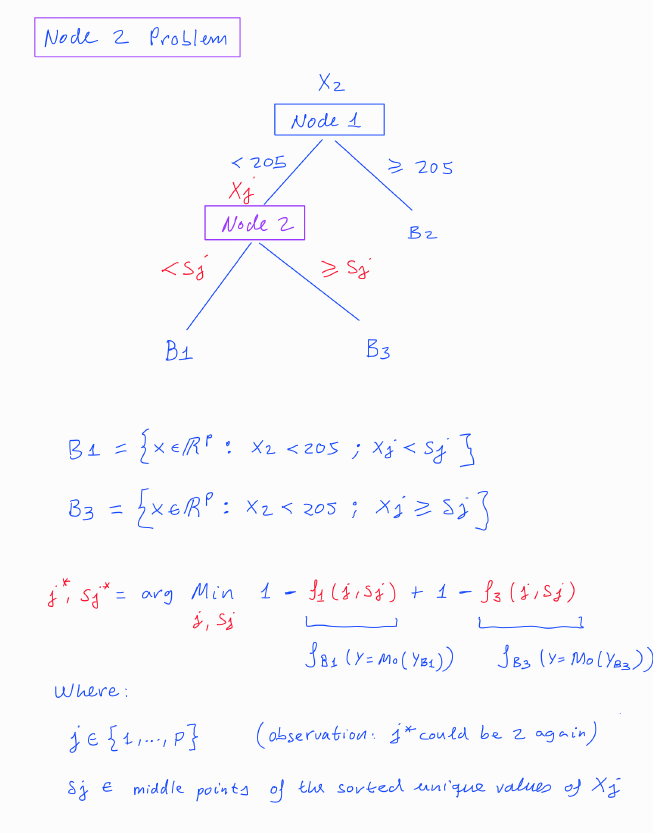 Node 2 Problem
X2
Node 1
< 205
≥ 205
Xj
Node 2
B2
< Sj
≥ Sj
B1
B3
B1 = {x ∈ ℝᵖ : X2 < 205 ; Xj < Sj }
B3 = {x ∈ ℝᵖ : X2 < 205 ; Xj ≥ Sj }
j*, Sj* = arg Min 1 - f1 (j, Sj) + 1 - f3 (j, Sj)
j, Sj
fB1 (Y = Mo(YB1)) fB3 (Y = Mo(YB3))
Where:
j ∈ {1, ..., P} (observation: j* could be 2 again)
Sj ∈ middle points of the sorted unique values of Xj